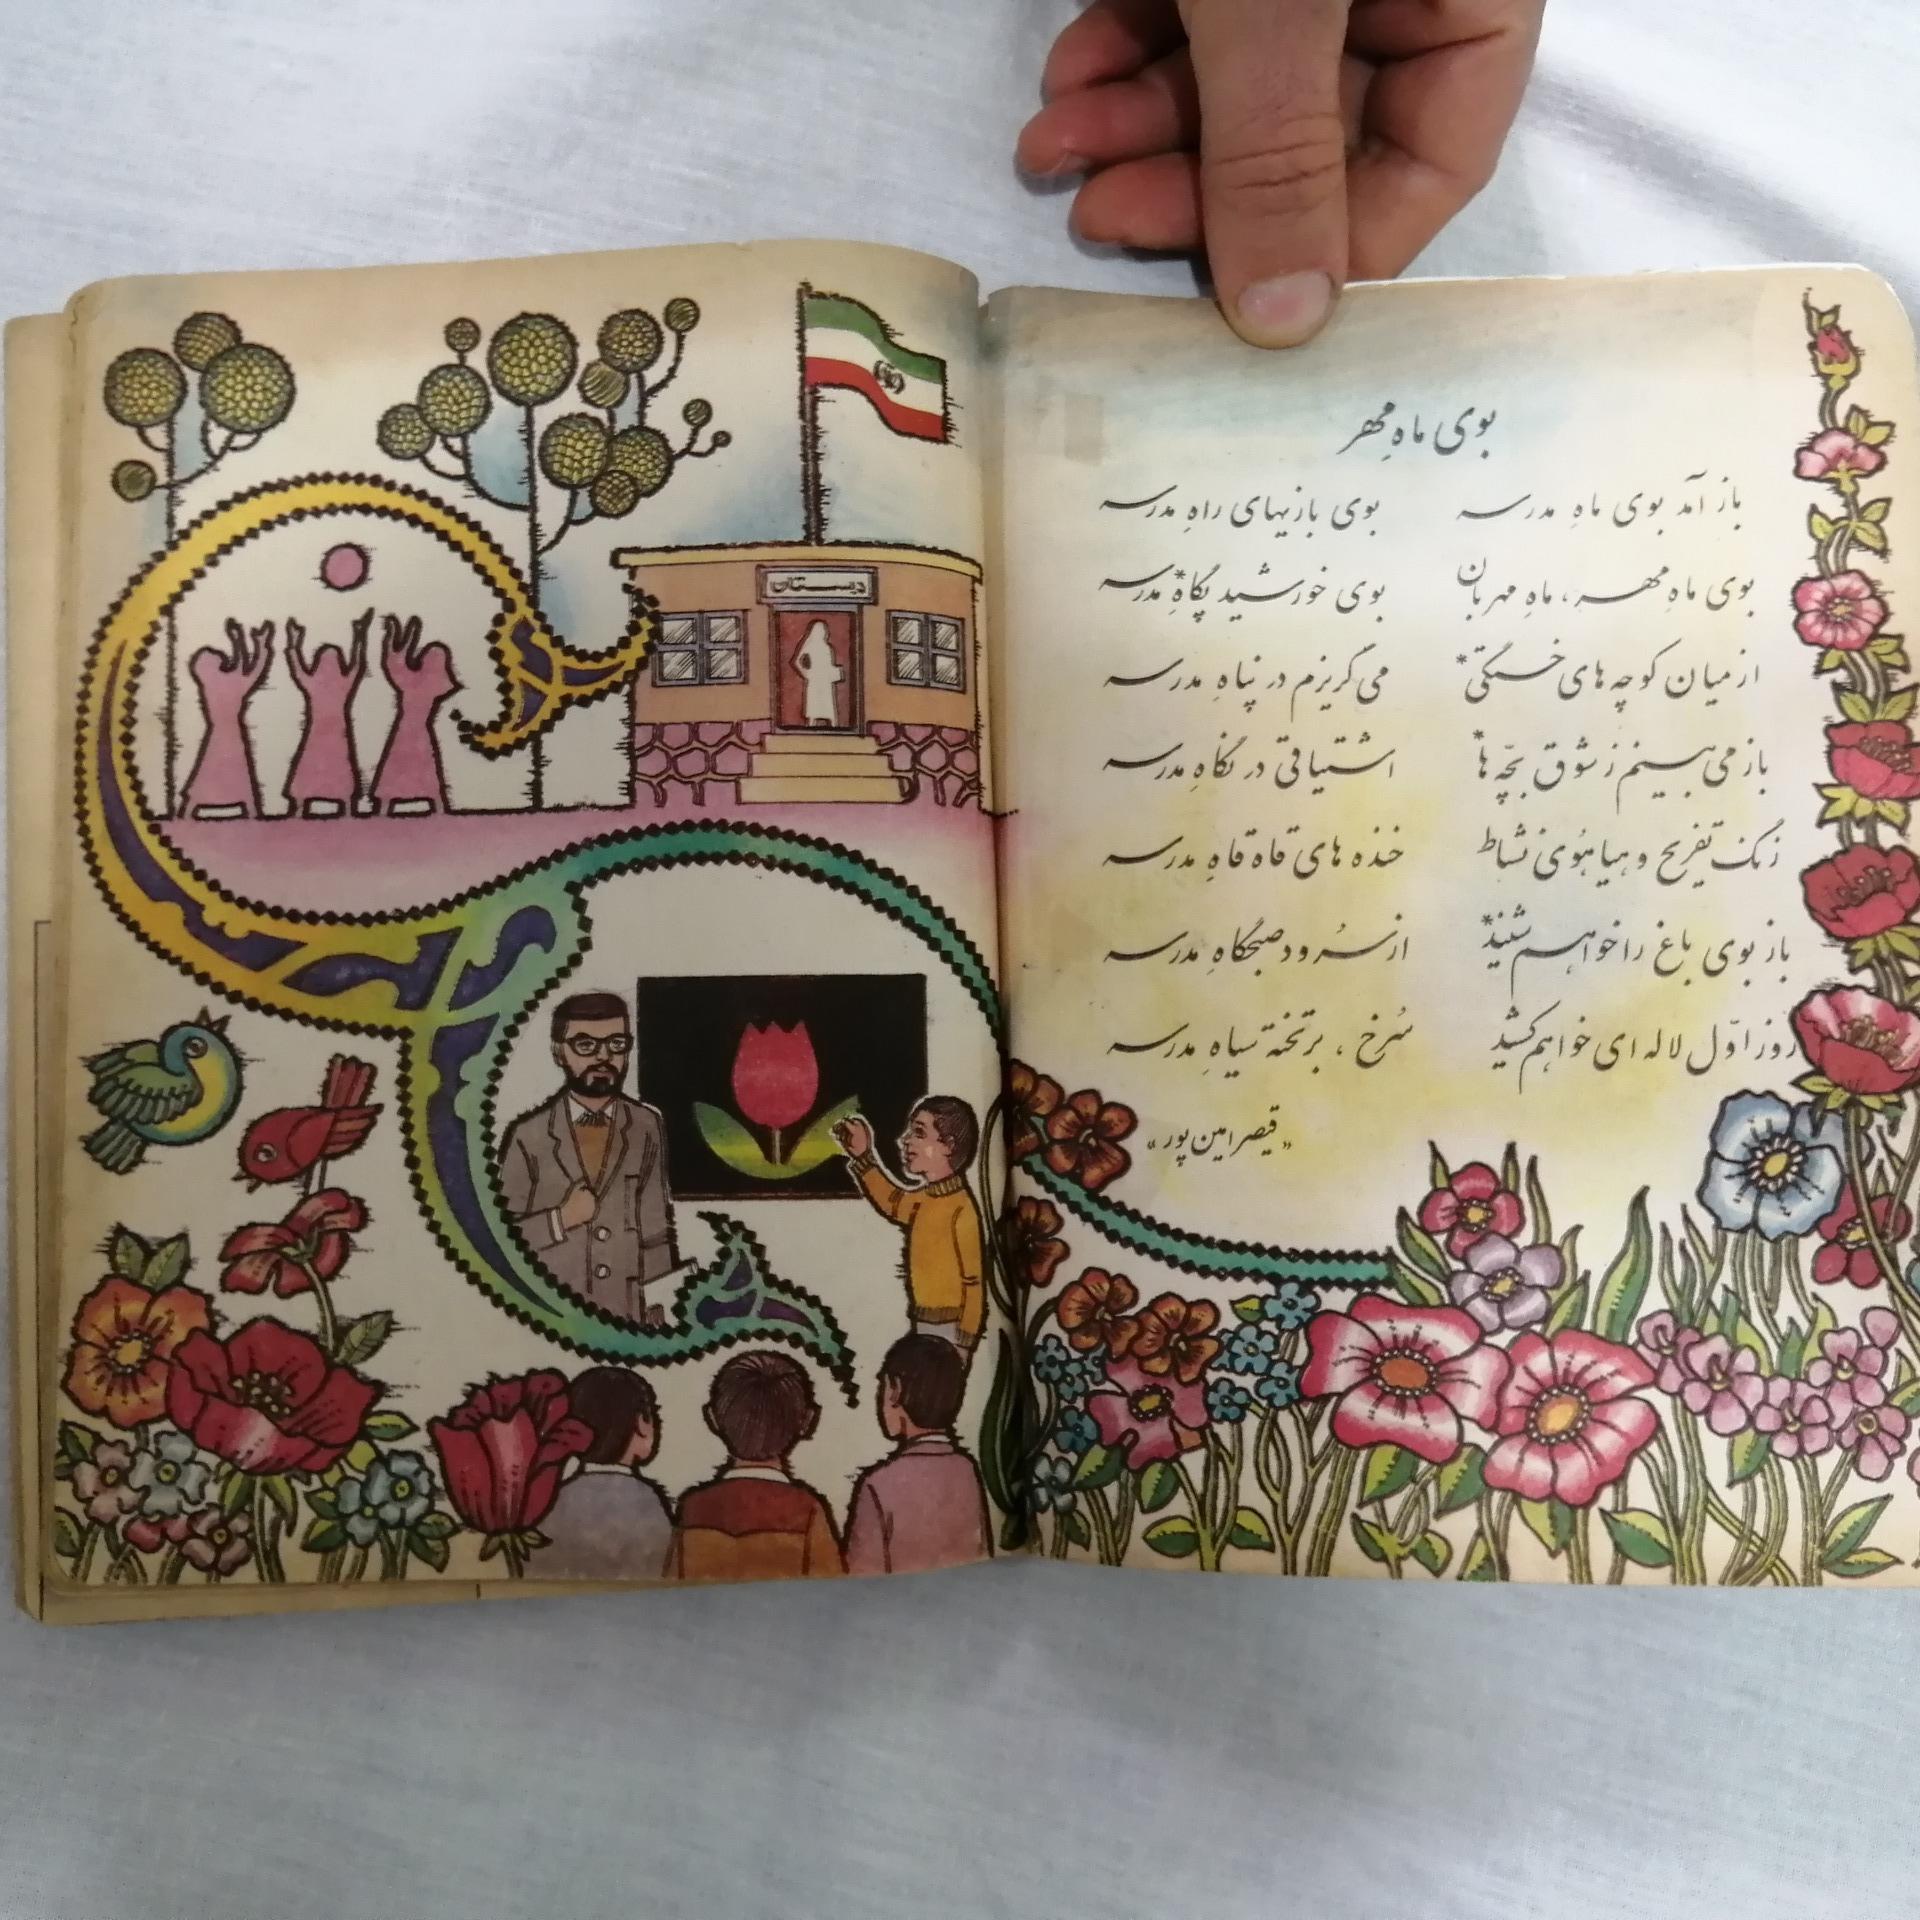 دبستان
بوی ماهِ مهر
باز آمد بوی ماهِ مدرسه بوی بازیهای راهِ مدرسه
بوی ماهِ مهر، ماهِ مهربان بوی خورشید پگاهِ* مدرسه
از میان کوچه های خستگی* می گریزم در پناهِ مدرسه
باز می بینم ز شوق بچّه ها* اشتیاقی در نگاهِ مدرسه
زنگ تفریح و هیاهُوی نشاط خنده های قاه قاهِ مدرسه
باز بوی باغ را خواهم شنید* از سُرود صبحگاهِ مدرسه
روز اوّل لاله ای خواهم کشید سُرخ، بر تخته سیاهِ مدرسه
«قیصر امین پور»